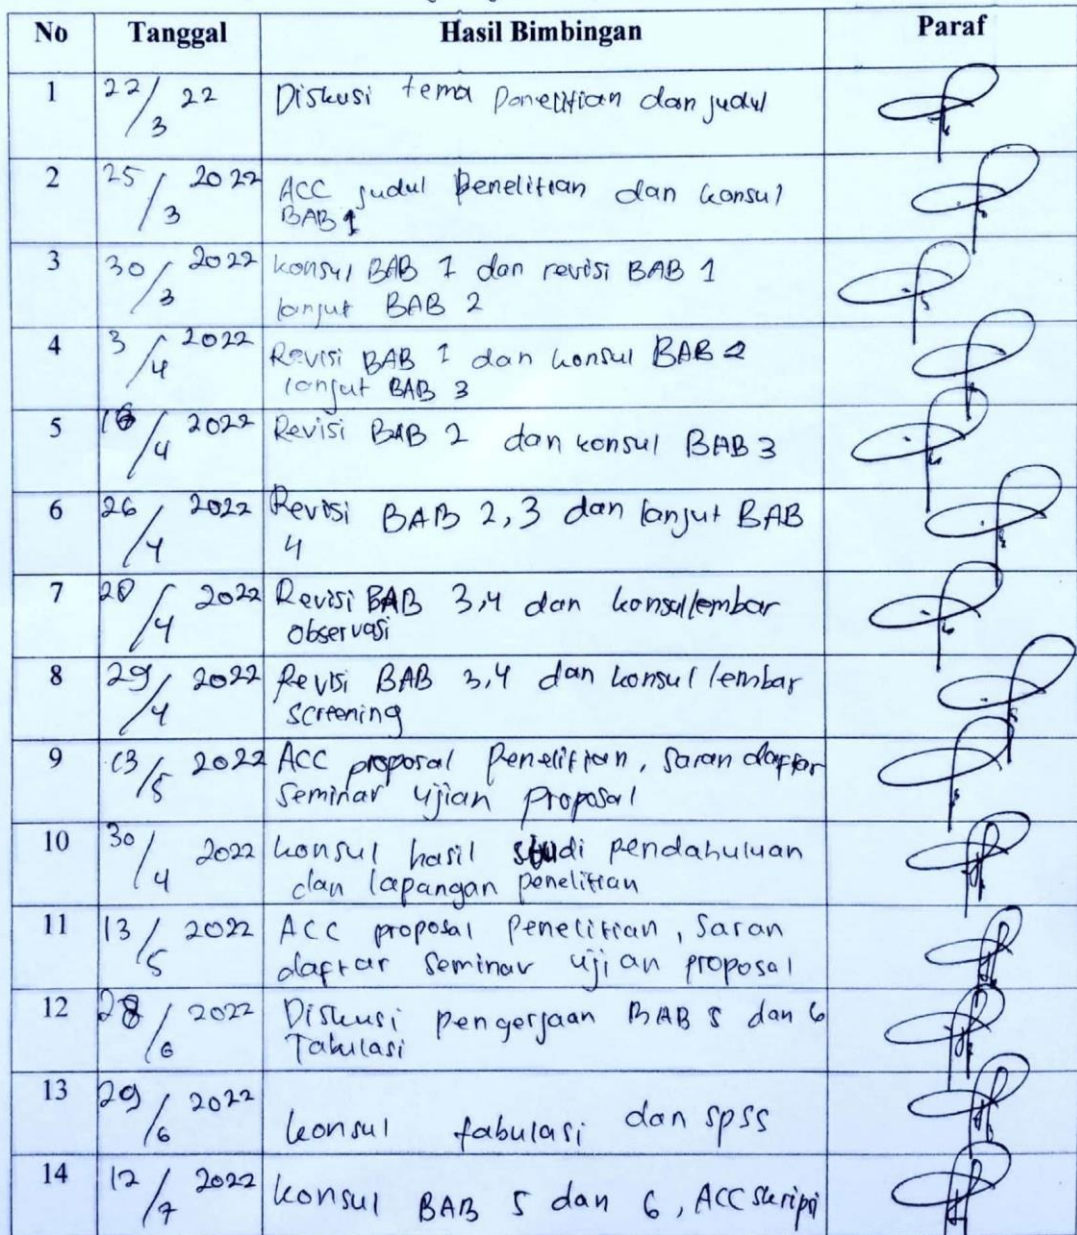 No Tanggal Hasil Bimbingan Paraf
1 22/3 22 Diskusi tema Penelitian dan judul
2 25/3 2022 ACC judul Penelitian dan konsul
BAB 1
3 30/3 2022 konsul BAB 1 dan revisi BAB 1
lanjut BAB 2
4 3/4 2022 Revisi BAB 1 dan konsul BAB 2
lanjut BAB 3
5 /4 2022 Revisi BAB 2 dan konsul BAB 3
6 26/4 2022 Revisi BAB 2,3 dan lanjut BAB
4
7 /4 2022 Revisi BAB 3,4 dan konsul lembar
observasi
8 29/4 2022 Revisi BAB 3,4 dan konsul lembar
screening
9 13/5 2022 ACC proposal Penelitian, Saran daftar
Seminar Ujian Proposal
10 30/4 2022 konsul hasil studi pendahuluan
dan lapangan penelitian
11 13/5 2022 ACC proposal Penelitian, Saran
daftar Seminar Ujian proposal
12 28/6 2022 Diskusi pengerjaan BAB 5 dan 6
Tabulasi
13 29/6 2022 konsul tabulasi dan spss
14 12/7 2022 konsul BAB 5 dan 6, ACC skripsi